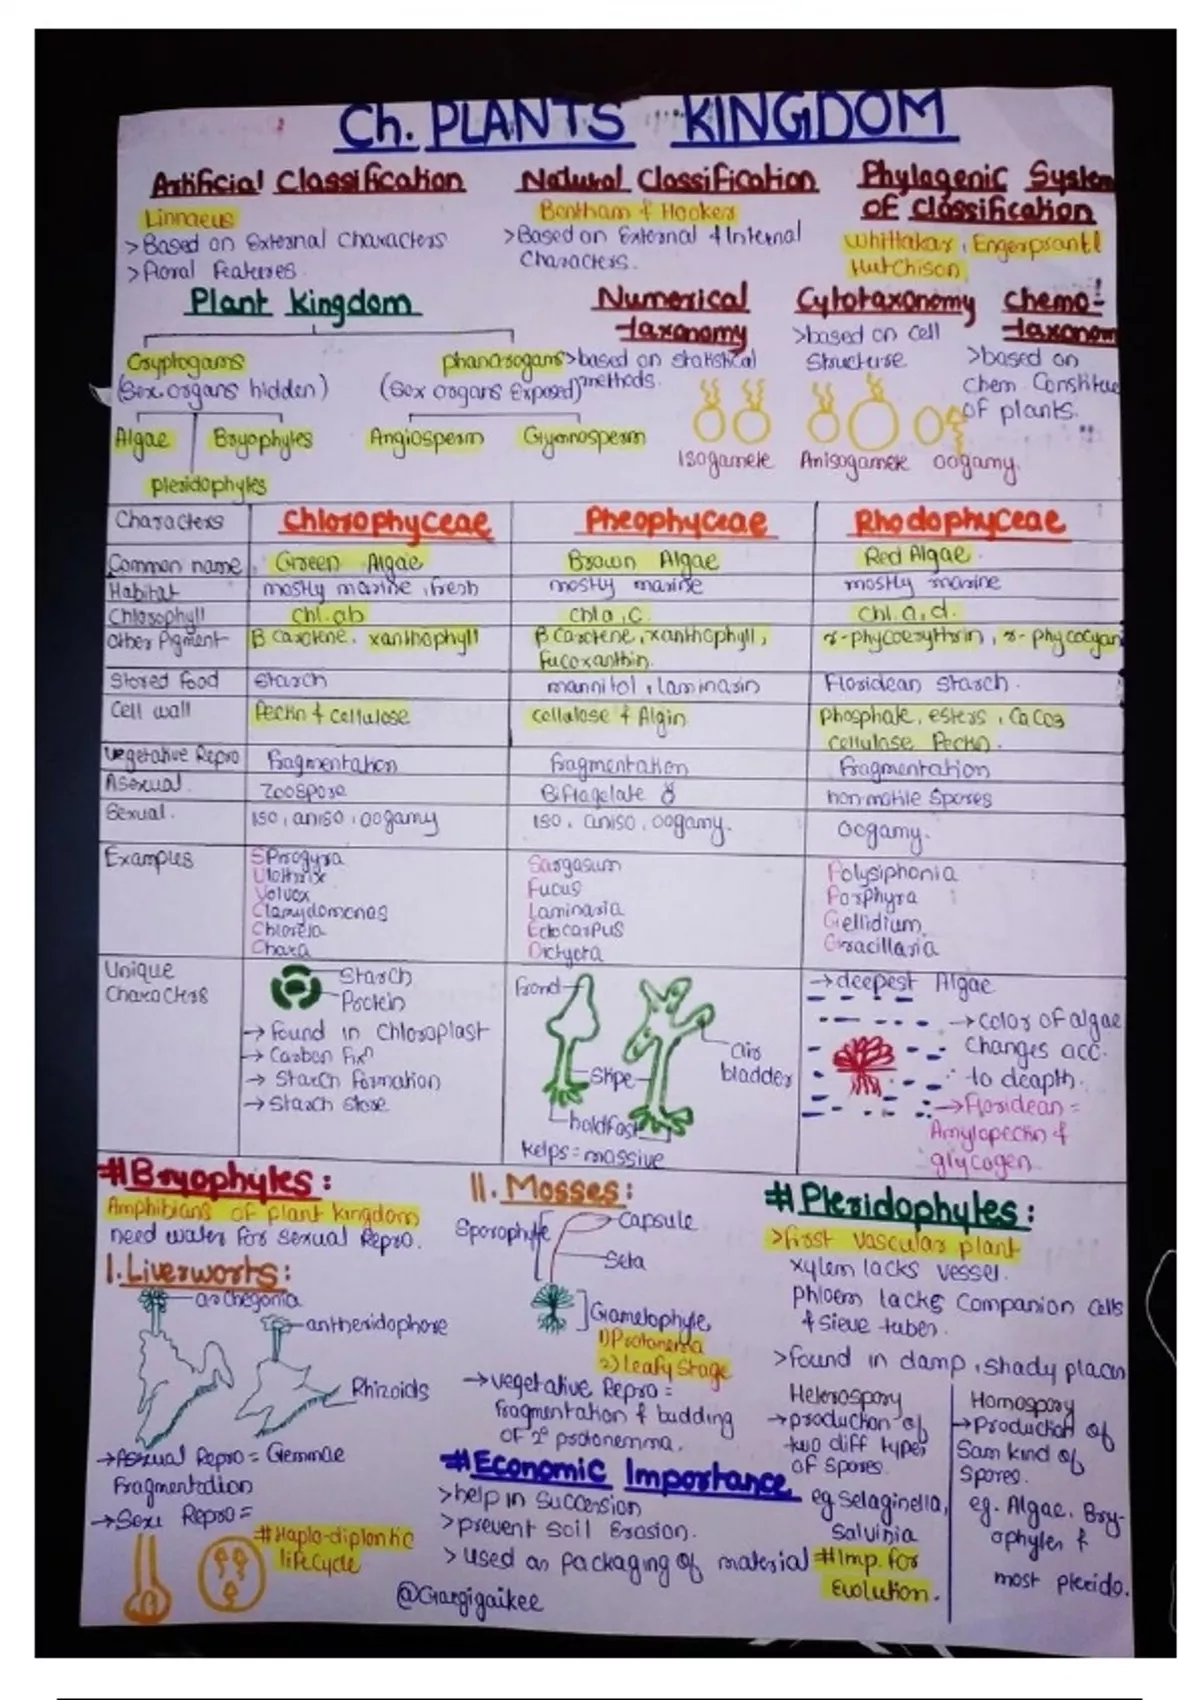 Ch. PLANTS KINGDOM
Artificial Classification
Linnaeus
>Based on External Characters
>floral features.
Natural Classification
Bentham & Hooker
>Based on External & Internal
Characters.
Phylogenic System
of classification
Whittakar, Engerprantl
Hutchison
Plant Kingdom
Cryptogams
(Sex organs hidden)
phanarogams
(Sex organs Exposed)
Algae
Bryophytes
pleridophytes
Angiosperm
Gymnosperm
Numerical
taxonomy
>based on statistical
methods.
Cytotaxonomy
>based on cell
structure
chemo-
taxonom
>based on
chem. Constitue
of plants.
Isogamete
Anisogamete
oogamy.
Characters
Chlorophyceae
Pheophyceae
Rhodophyceae
Common name
Green Algae
Brown Algae
Red Algae.
Habitat
mostly marine, fresh
mostly marine
mostly marine
Chlorophyll
Chl. ab
Chl a, c.
Chl. a, d.
Other Pigment
β carotene, xanthophyll
β carotene, xanthophyll,
fucoxanthin.
r-phycoerythrin, r-phycocyan
Stored food
starch
mannitol, laminarin
Floridean starch.
Cell wall
Pectin & cellulose
cellulose & Algin
phosphate, esters, CaCO3
cellulose Pectin.
Vegetative Repro
fragmentation
fragmentation
fragmentation
Asexual.
Zoospore
Biflagelate
non-motile Spores
Sexual.
iso, aniso, oogamy
iso, aniso, oogamy.
oogamy.
Examples
Spirogyra
Ulothrix
Volvox
Clamydomonas
Chlorela
Chara
Sargasum
Fucus
Laminaria
Ectocarpus
Dictyota
Polysiphonia
Porphyra
Gellidium
Gracillaria
Unique
Characters
Starch
Protein
→ found in Chloroplast
→ Carbon Fixn
→ Starch Formation
→ Starch store
frond
Stipe
holdfast
air
bladder
Kelps = massive
→ deepest Algae
→ color of algae
Changes acc.
to deapth.
→ Floridean =
Amylopectin &
glycogen
# Bryophytes:
Amphibians of plant kingdom
need water for sexual Repro.
I. Liverworts:
archegonia
antheridophore
Rhizoids
→ Asexual Repro = Gemmae
Fragmentation
→ Sexu Repro =
# Haplo-diplontic
lifecycle
II. Mosses:
Sporophyte
Capsule
Seta
Gametophyte
1) Protonema
2) leafy stage
→ vegetative Repro =
fragmentation & budding
of 2° protonemma.
# Economic Importance
>help in succession
>prevent soil Erosion.
>used as packaging of material
@Gargigaikee
# Pleridophytes:
>first vascular plant
xylem lacks vessel.
Phloem lacks Companion cells
& sieve tuber.
>found in damp, shady places
Heterospory
→production of
two diff types
of spores.
eg. Selaginella,
Salvinia
# Imp. for
Evolution.
Homospory
→ Production of
Sam kind of
spores.
eg. Algae, Bry-
ophytes &
most pterido.